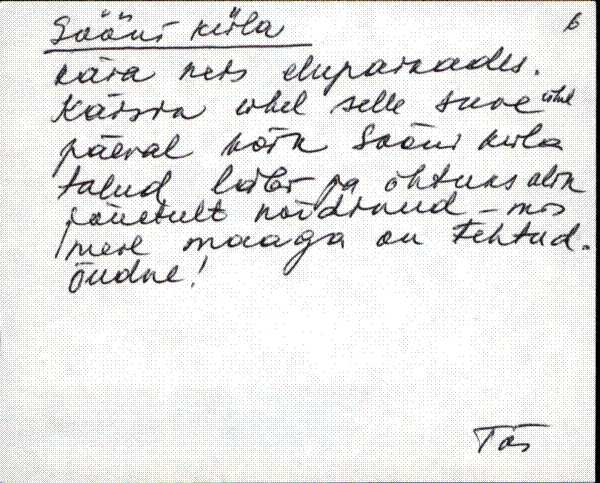 6
Sööni küla
kära neis eluparkades.
Käisin ühel selle suve ühel
päeval kõik Sööni küla
talud läbi ja õhtuks olin
jõuetult nõidunud – mis
meie maaga on tehtud.
Õudne!
Tõs